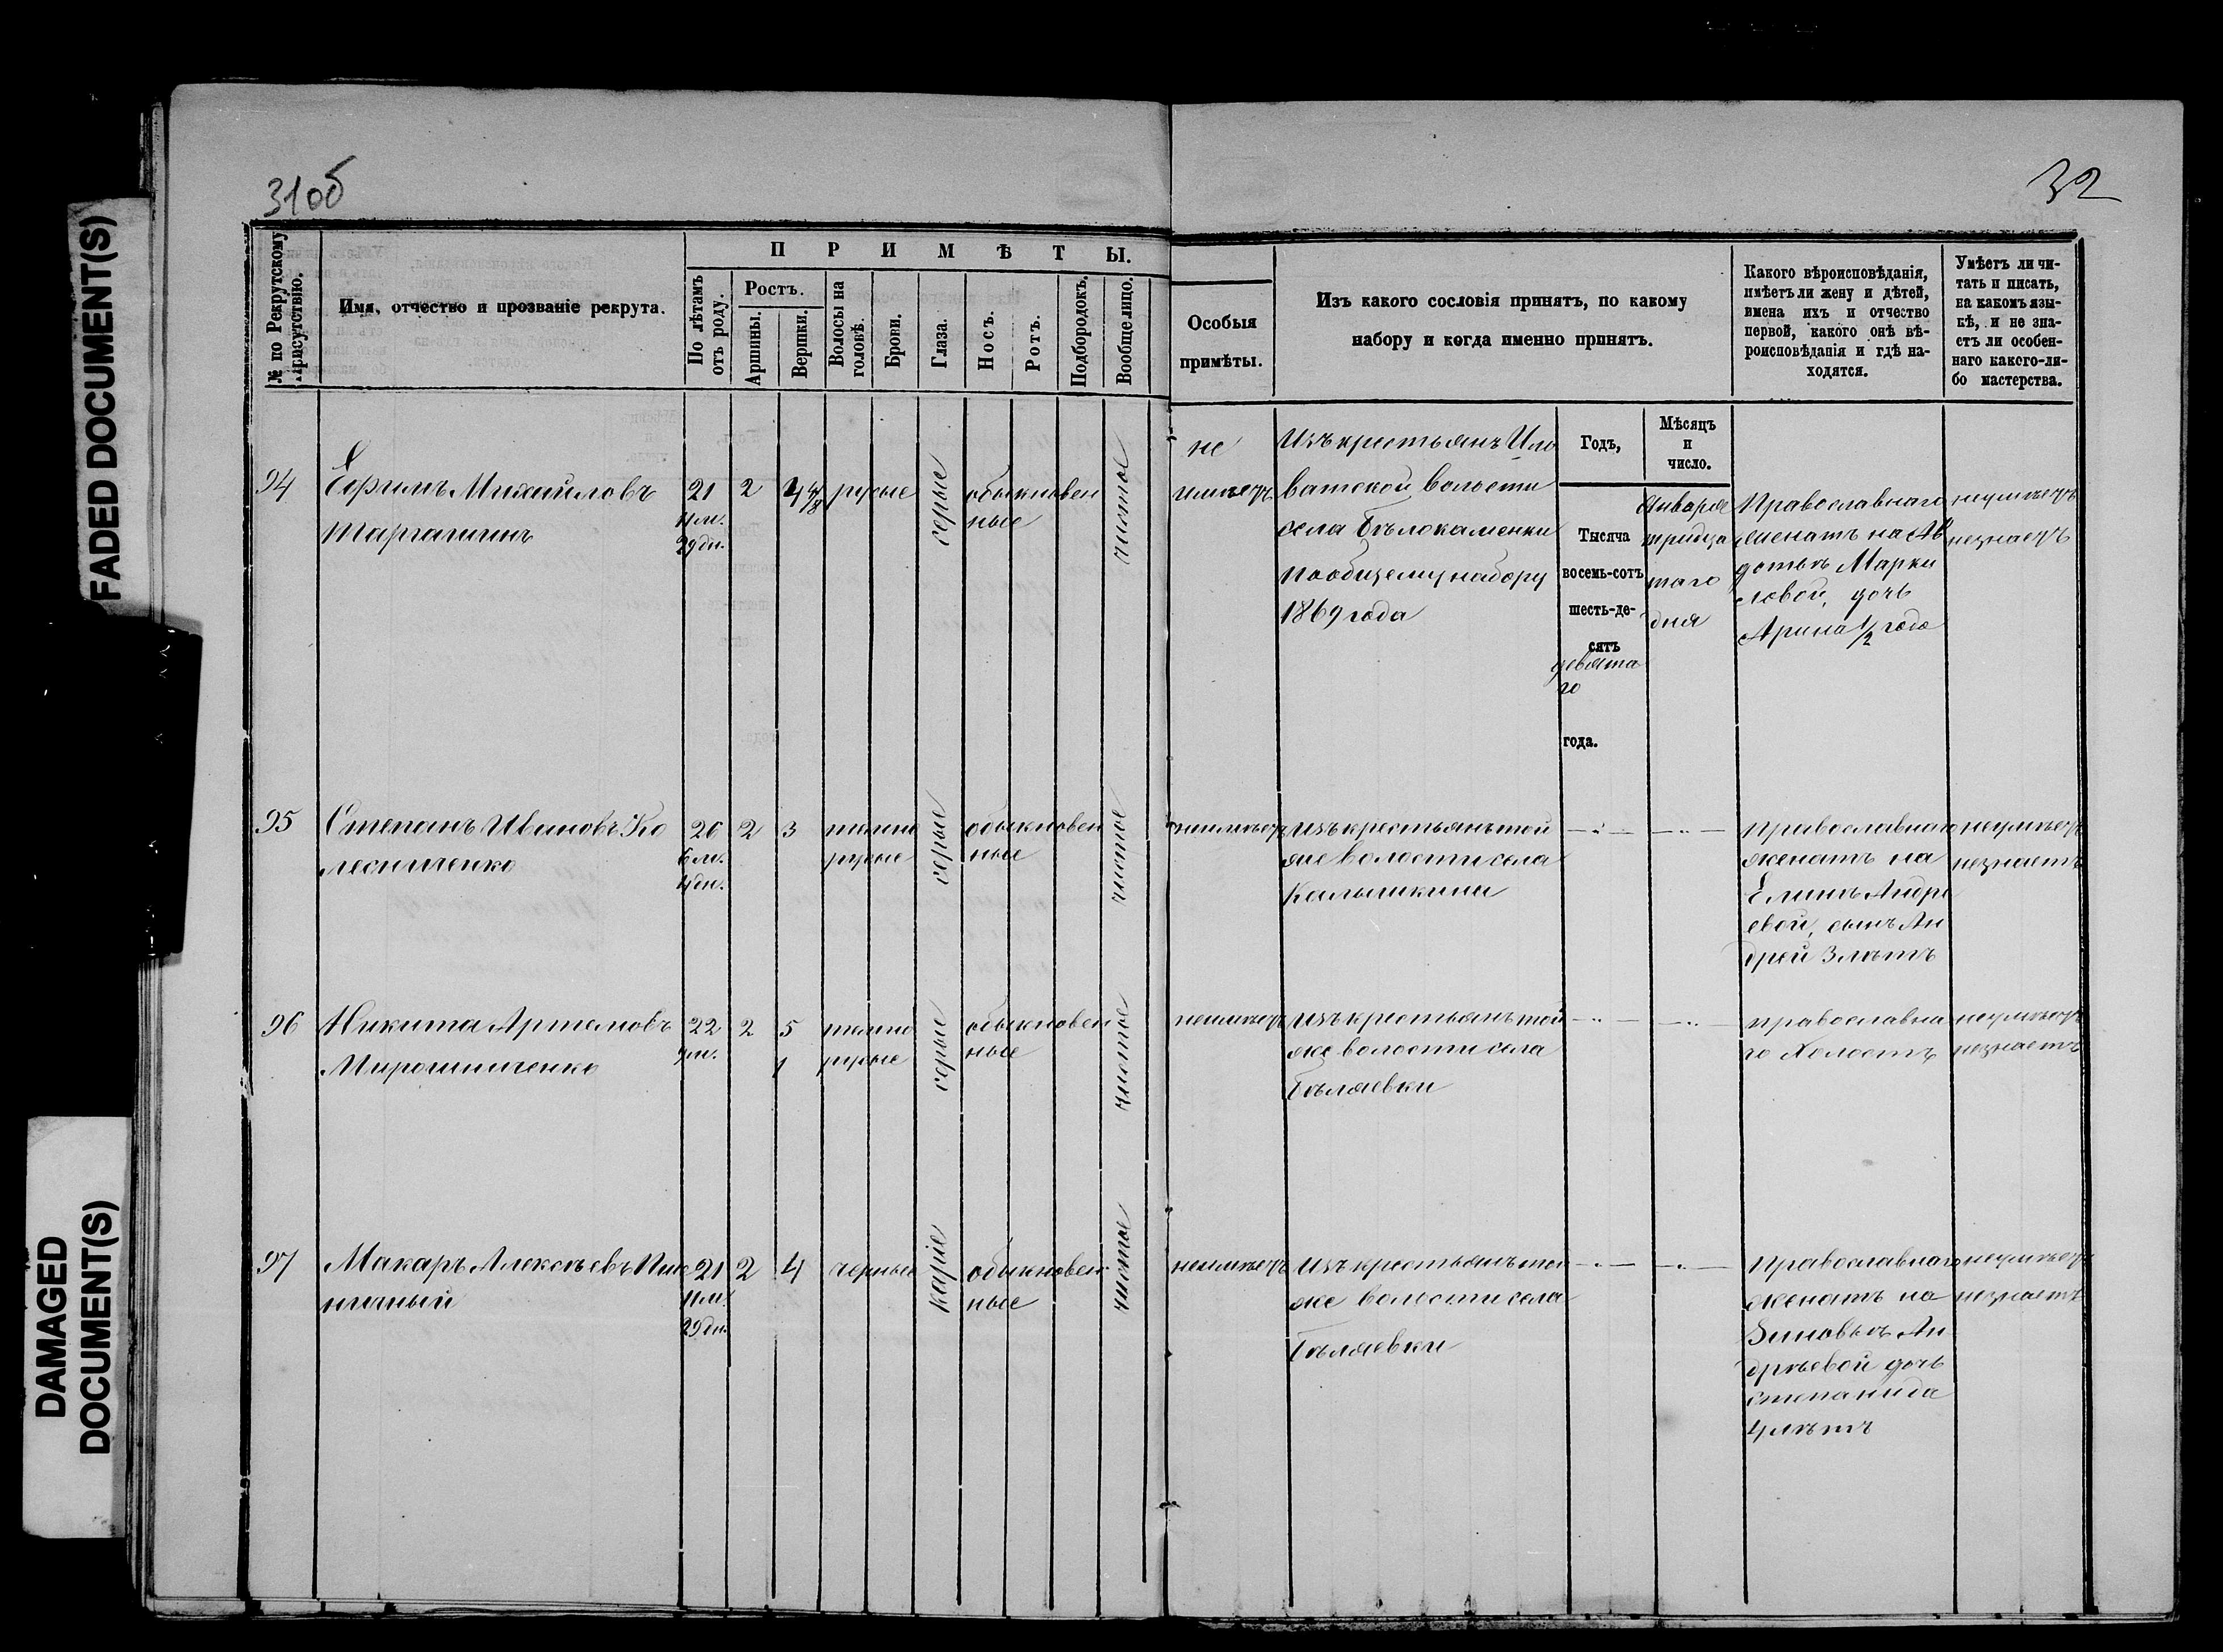 FADED DOCUMENT(S)
DAMAGED
DOCUMENT(S)
31об
32
№ по Рекрутскому
присутствію.
Имя, отчество и прозваніе рекрута.
ПРИМѢТЫ.
По лѣтамъ
отъ роду.
Ростъ.
Аршины.
Вершки.
Волосы на
головѣ.
Брови.
Глаза.
Носъ.
Ротъ.
Подбородокъ.
Вообще лицо.
Особыя
примѣты.
Изъ какого сословія принятъ, по какому
набору и когда именно принятъ.
Какого вѣроисповѣданія,
имѣетъ ли жену и дѣтей,
имена ихъ и отчество
первой, какого онѣ вѣ-
роисповѣданія и гдѣ на-
ходятся.
Умѣетъ ли чи-
тать и писать,
на какомъ язы-
кѣ, и не зна-
етъ ли особен-
наго какого-ли-
бо мастерства.
Годъ,
Мѣсяцъ
и
число.
Тысяча
восемь-сотъ
шесть-де-
сятъ
девята
го
года.
Января
тридца
таго
дня
94
Ефимъ Михайловъ
21
11 м.
29 дн.
2
4 4/8
русые
серые
обыкновен
ные
чистое
не
имѣетъ
Изъ крестьянъ Ило
ватской волости
села Бѣлокаменки
по общему набору
1869 года
Православнаго
женатъ на Ав
дотьѣ Марки
ловой, дочь
Арина 1/2 года
неумѣетъ
незнаетъ
95
Степанъ Ивановъ Ко
лесниченко
26
6 м.
4 дн.
2
3
темно
русые
серые
обыкновен
ные
чистое
неимѣетъ
Изъ крестьянъ той
же волости села
Калышкина
— " —
— " —
православнаго
женатъ на
Еленѣ Андре
евой, сынъ Ан
дрей 3 лѣтъ
неумѣетъ
незнаетъ
96
Никита Артемовъ
Мирошниченко
22
4 м.
2
5
темно
русые
серые
обыкновен
ные
чистое
неимѣетъ
Изъ крестьянъ той
же волости села
Бѣляевки
— " —
— " —
православна
го Холостъ
неумѣетъ
незнаетъ
97
Макаръ Алексѣевъ Пше
ничный
21
11 м.
29 дн.
2
4
черные
каріе
обыкновен
ные
чистое
неимѣетъ
Изъ крестьянъ той
же волости села
Бѣляевки
— " —
— " —
Православнаго
женатъ на
Зиновьѣ Ан
дрѣевой дочь
Степанида
4 лѣтъ
неумѣетъ
незнаетъ